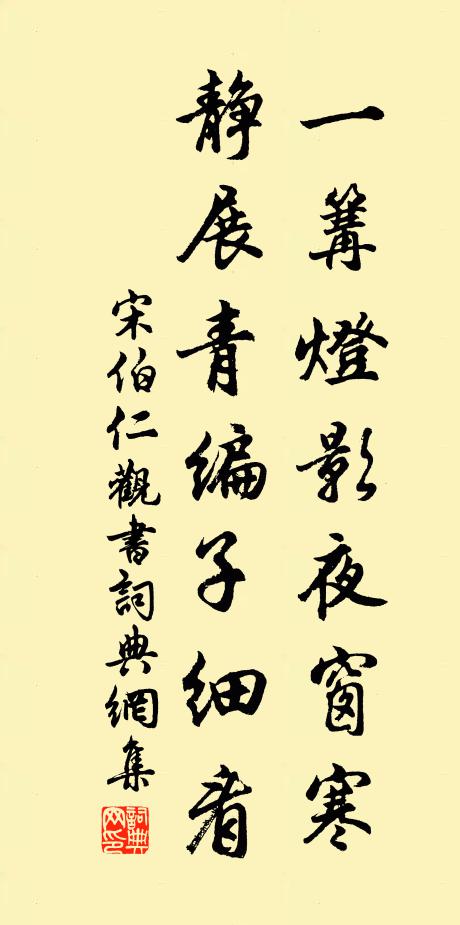 一篝燈影夜窗寒
静展青编子细看
宋伯仁觀書詞典網集
詞典
网印